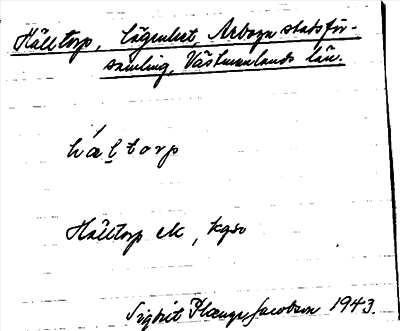 Hälltorp, lägenhet, Arboga stadsför-
samling, Västmanlands län.
hál torp
Hälltorp ek, kgso
Sigbrit Plænge Jacobson 1943.